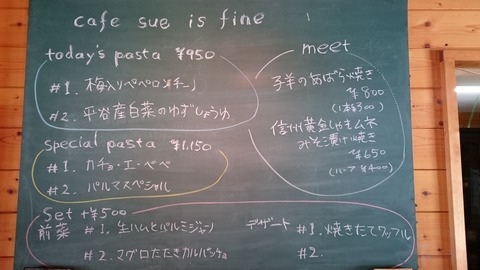 cafe sue is fine
today's pasta ¥950
#1. 梅入りペペロンチーノ
#2. 平谷産白菜のゆずしょうゆ
special pasta ¥1,150
#1. カチョ・エ・ペペ
#2. パルマスペシャル
meet
子羊のあばら焼き
¥800
(1本¥300)
信州黄金しゃも
みそ漬け焼き
¥650
(ハーフ ¥400)
Set +¥500
前菜 #1. 生ハムとパルミジャーノ
#2. マグロたたきカルパッチョ
デザート #1. 焼きたてワッフル
#2.